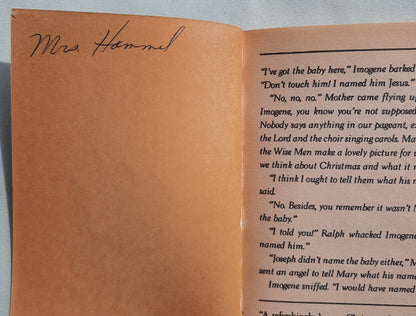 Mrs. Hammel
"I've got the baby here," Imogene barked
"Don't touch him! I named him Jesus."
"No, no, no." Mother came flying up
Imogene, you know you're not supposed
Nobody says anything in our pageant, ex
the Lord and the choir singing carols. Ma
the Wise Men make a lovely picture for
we think about Christmas and what it
"I think I ought to tell them what his
said.
"No. Besides, you remember it wasn't
the baby."
"I told you!" Ralph whacked Imogene
named him."
"Joseph didn't name the baby either,"
sent an angel to tell Mary what his name
Imogene sniffed. "I would have named